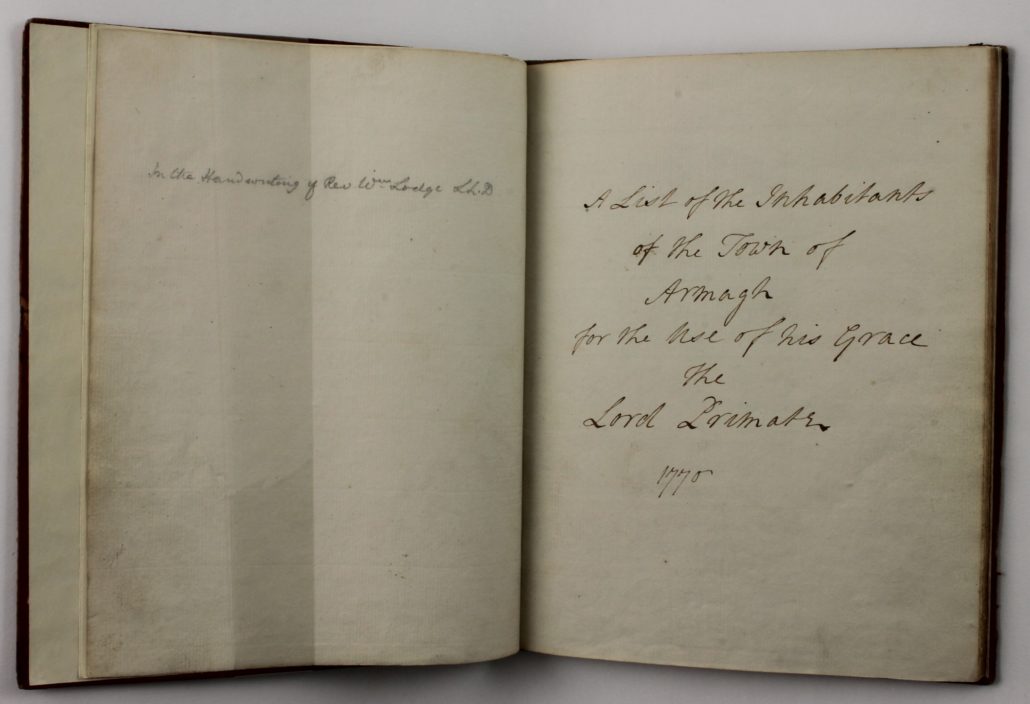 In the Handwriting of Rev Wm Lodge LL.D
A List of the Inhabitants
of the Town of
Armagh
for the Use of his Grace
the
Lord Primate
1770